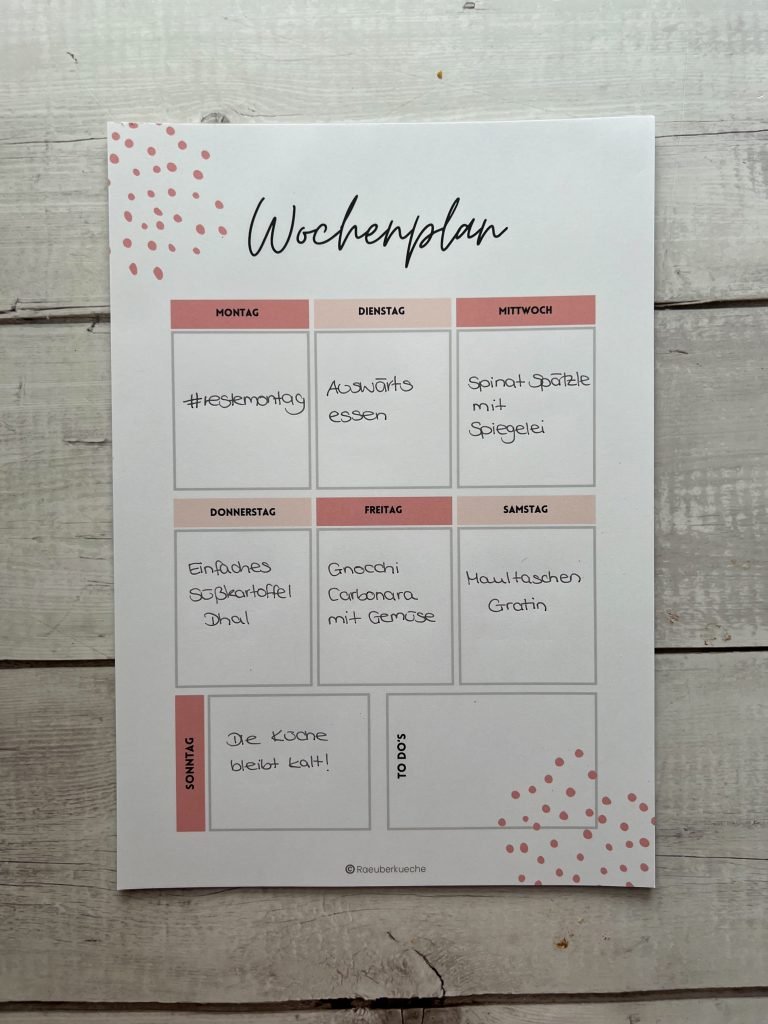 Wochenplan
MONTAG
#restemontag
DIENSTAG
Auswärts
essen
MITTWOCH
Spinat Spätzle
mit
Spiegelei
DONNERSTAG
Einfaches
Süßkartoffel
Dhal
FREITAG
Gnocchi
Carbonara
mit Gemüse
SAMSTAG
Maultaschen
Gratin
SONNTAG
Die Küche
bleibt kalt!
TO DO'S
©Raeuberkueche